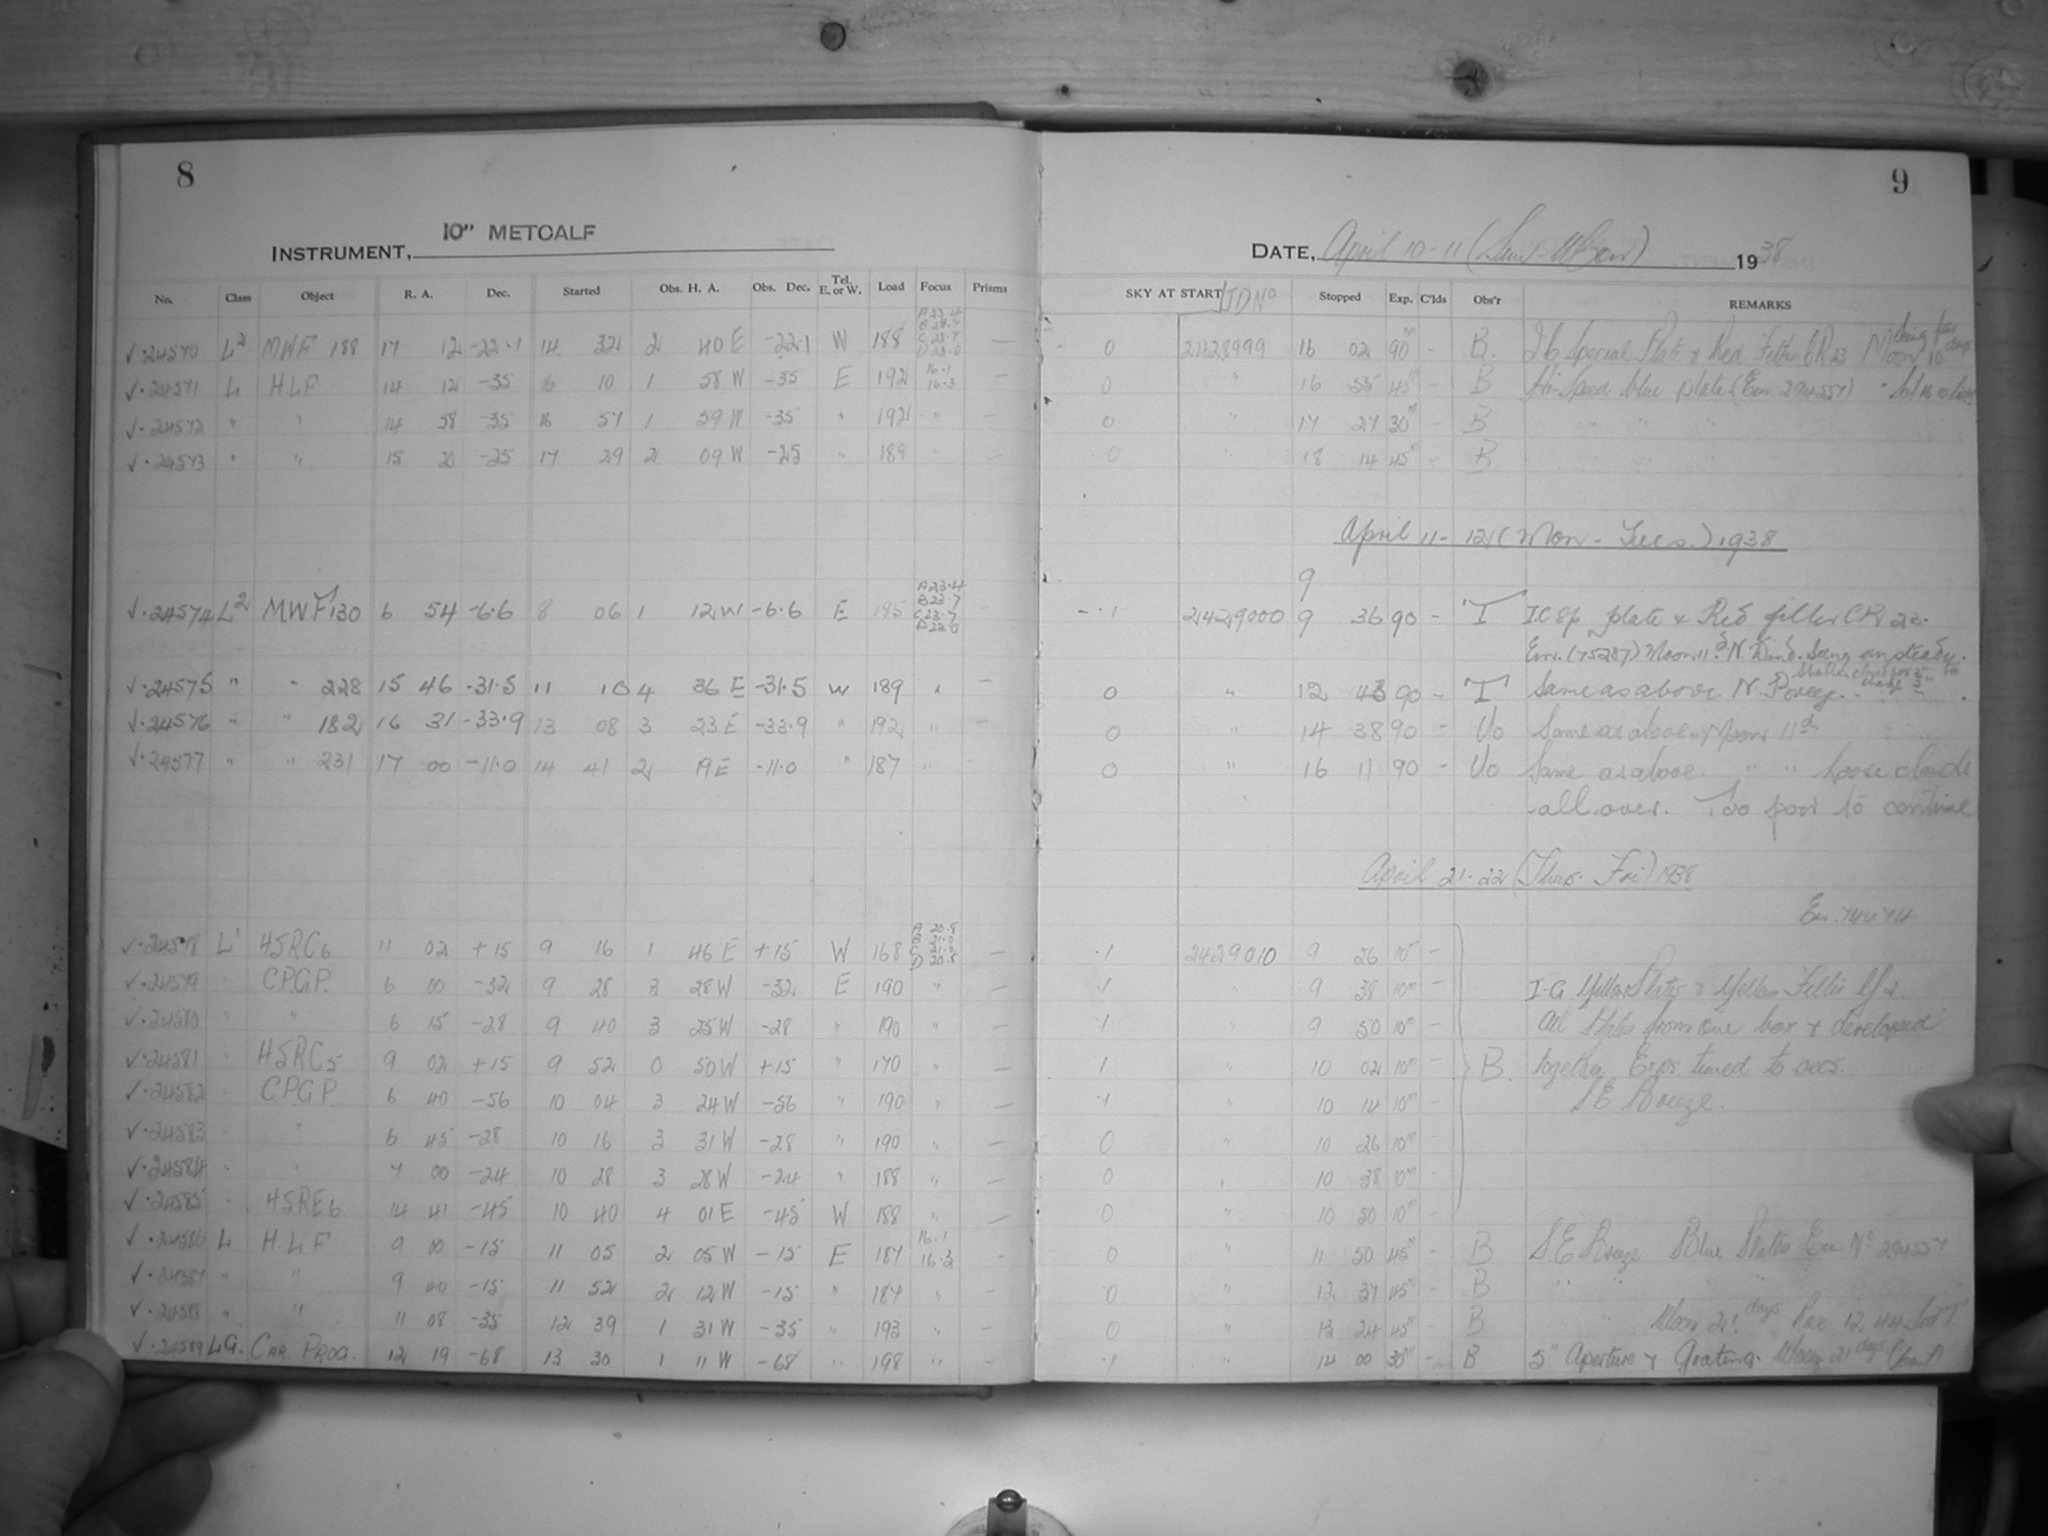 8
10" METCALF
INSTRUMENT,
No. Class Object R. A. Dec. Started Obs. H. A. Obs. Dec. Tel. E. or W. Load Focus Prisms
√·24570 L2 MWF 188 17 12 -22·1 14 32 2 40 E -22·1 W 188 —
√·24571 L HLF 14 12 -35 16 10 1 58 W -35 E 192 16·1 16·3 —
√·24572 " " 14 58 -35 16 57 1 59 W -35 " 192 " —
√·24573 " " 15 20 -25 17 29 2 09 W -25 " 189 —
√·24574 L2 MWF 130 6 54 -6·6 8 06 1 12 W -6·6 E 185 A 23·4 B 23·7 C 23·7 D 23·0 —
√·24575 " " 228 15 46 -31·5 11 10 4 36 E -31·5 W 189 " —
√·24576 " " 182 16 31 -33·9 13 08 3 23 E -33·9 " 192 " —
√·24577 " " 231 17 00 -11·0 14 41 2 19 E -11·0 " 187 " —
√·24578 L1 HSRC6 11 02 +15 9 16 1 46 E +15 W 168 —
√·24579 " C.P.G.P. 6 00 -32 9 28 3 28 W -32 E 190 " —
√·24580 " " 6 15 -28 9 40 3 25 W -28 " 190 " —
√·24581 " HSRC5 9 02 +15 9 52 0 50 W +15 " 170 " —
√·24582 " C.P.G.P. 6 40 -56 10 04 3 24 W -56 " 190 " —
√·24583 " " 6 45 -28 10 16 3 31 W -28 " 190 " —
√·24584 " " 7 00 -24 10 28 3 28 W -24 " 188 " —
√·24585 " HSRE6 14 41 -45 10 40 4 01 E -45 W 188 " —
√·24586 L H.L.F 9 00 -15 11 05 2 05 W -15 E 187 16·1 16·3 —
√·24587 " " 9 40 -15 11 52 2 12 W -15 " 187 " —
√·24588 " " 11 08 -35 12 39 1 31 W -35 " 193 " —
√·24589 LG. CAR. PROG. 12 19 -68 13 30 1 11 W -68 " 198 " —
9
DATE, April 10-11 (Sun-Mon) 1938
SKY AT START JDNo Stopped Exp. C'lds Obs'r REMARKS
0 2428999 16 02 90m - B. Special Plate & Red Filter CR 23 Moon 10 days
0 " 16 55 45m - B Hi-Speed blue plate (Em. 294557)
0 " 17 27 30m - B " " "
0 " 18 14 45m - B
April 11-12 (Mon-Tues.) 1938
9
-·1 2429000 9 36 90 - T I.C Sp plate & Red filter CR 23.
Em. (75287) Moon 11d. N. Wind. Seeing unsteady.
0 " 12 43 90 - T Same as above N. Breeze.
0 " 14 38 90 - Uo Same as above. Moon 11d
0 " 16 11 90 - Uo Same as above. " " Loose clouds
all over. Too poor to continue
April 21-22 (Thurs-Fri) 1938
Em. 74474
·1 2429010 9 26 10m -
·1 " 9 38 10m - I-G Yellow Plates & Yellow Filter Y2.
·1 " 9 50 10m - All plates from one box & developed
1 " 10 02 10m - B. together. Exps timed to secs.
·1 " 10 14 10m - SE Breeze.
0 " 10 26 10m -
0 " 10 38 10m -
0 " 10 50 10m -
0 " 11 50 45m - B S.E Breeze Blue Plates Em No 294557
0 " 12 37 45m - B " " " "
0 " 13 24 45m - B " Moon 21 days
·1 " 14 00 30m - B 5" Aperture & Grating. Moon 21 days